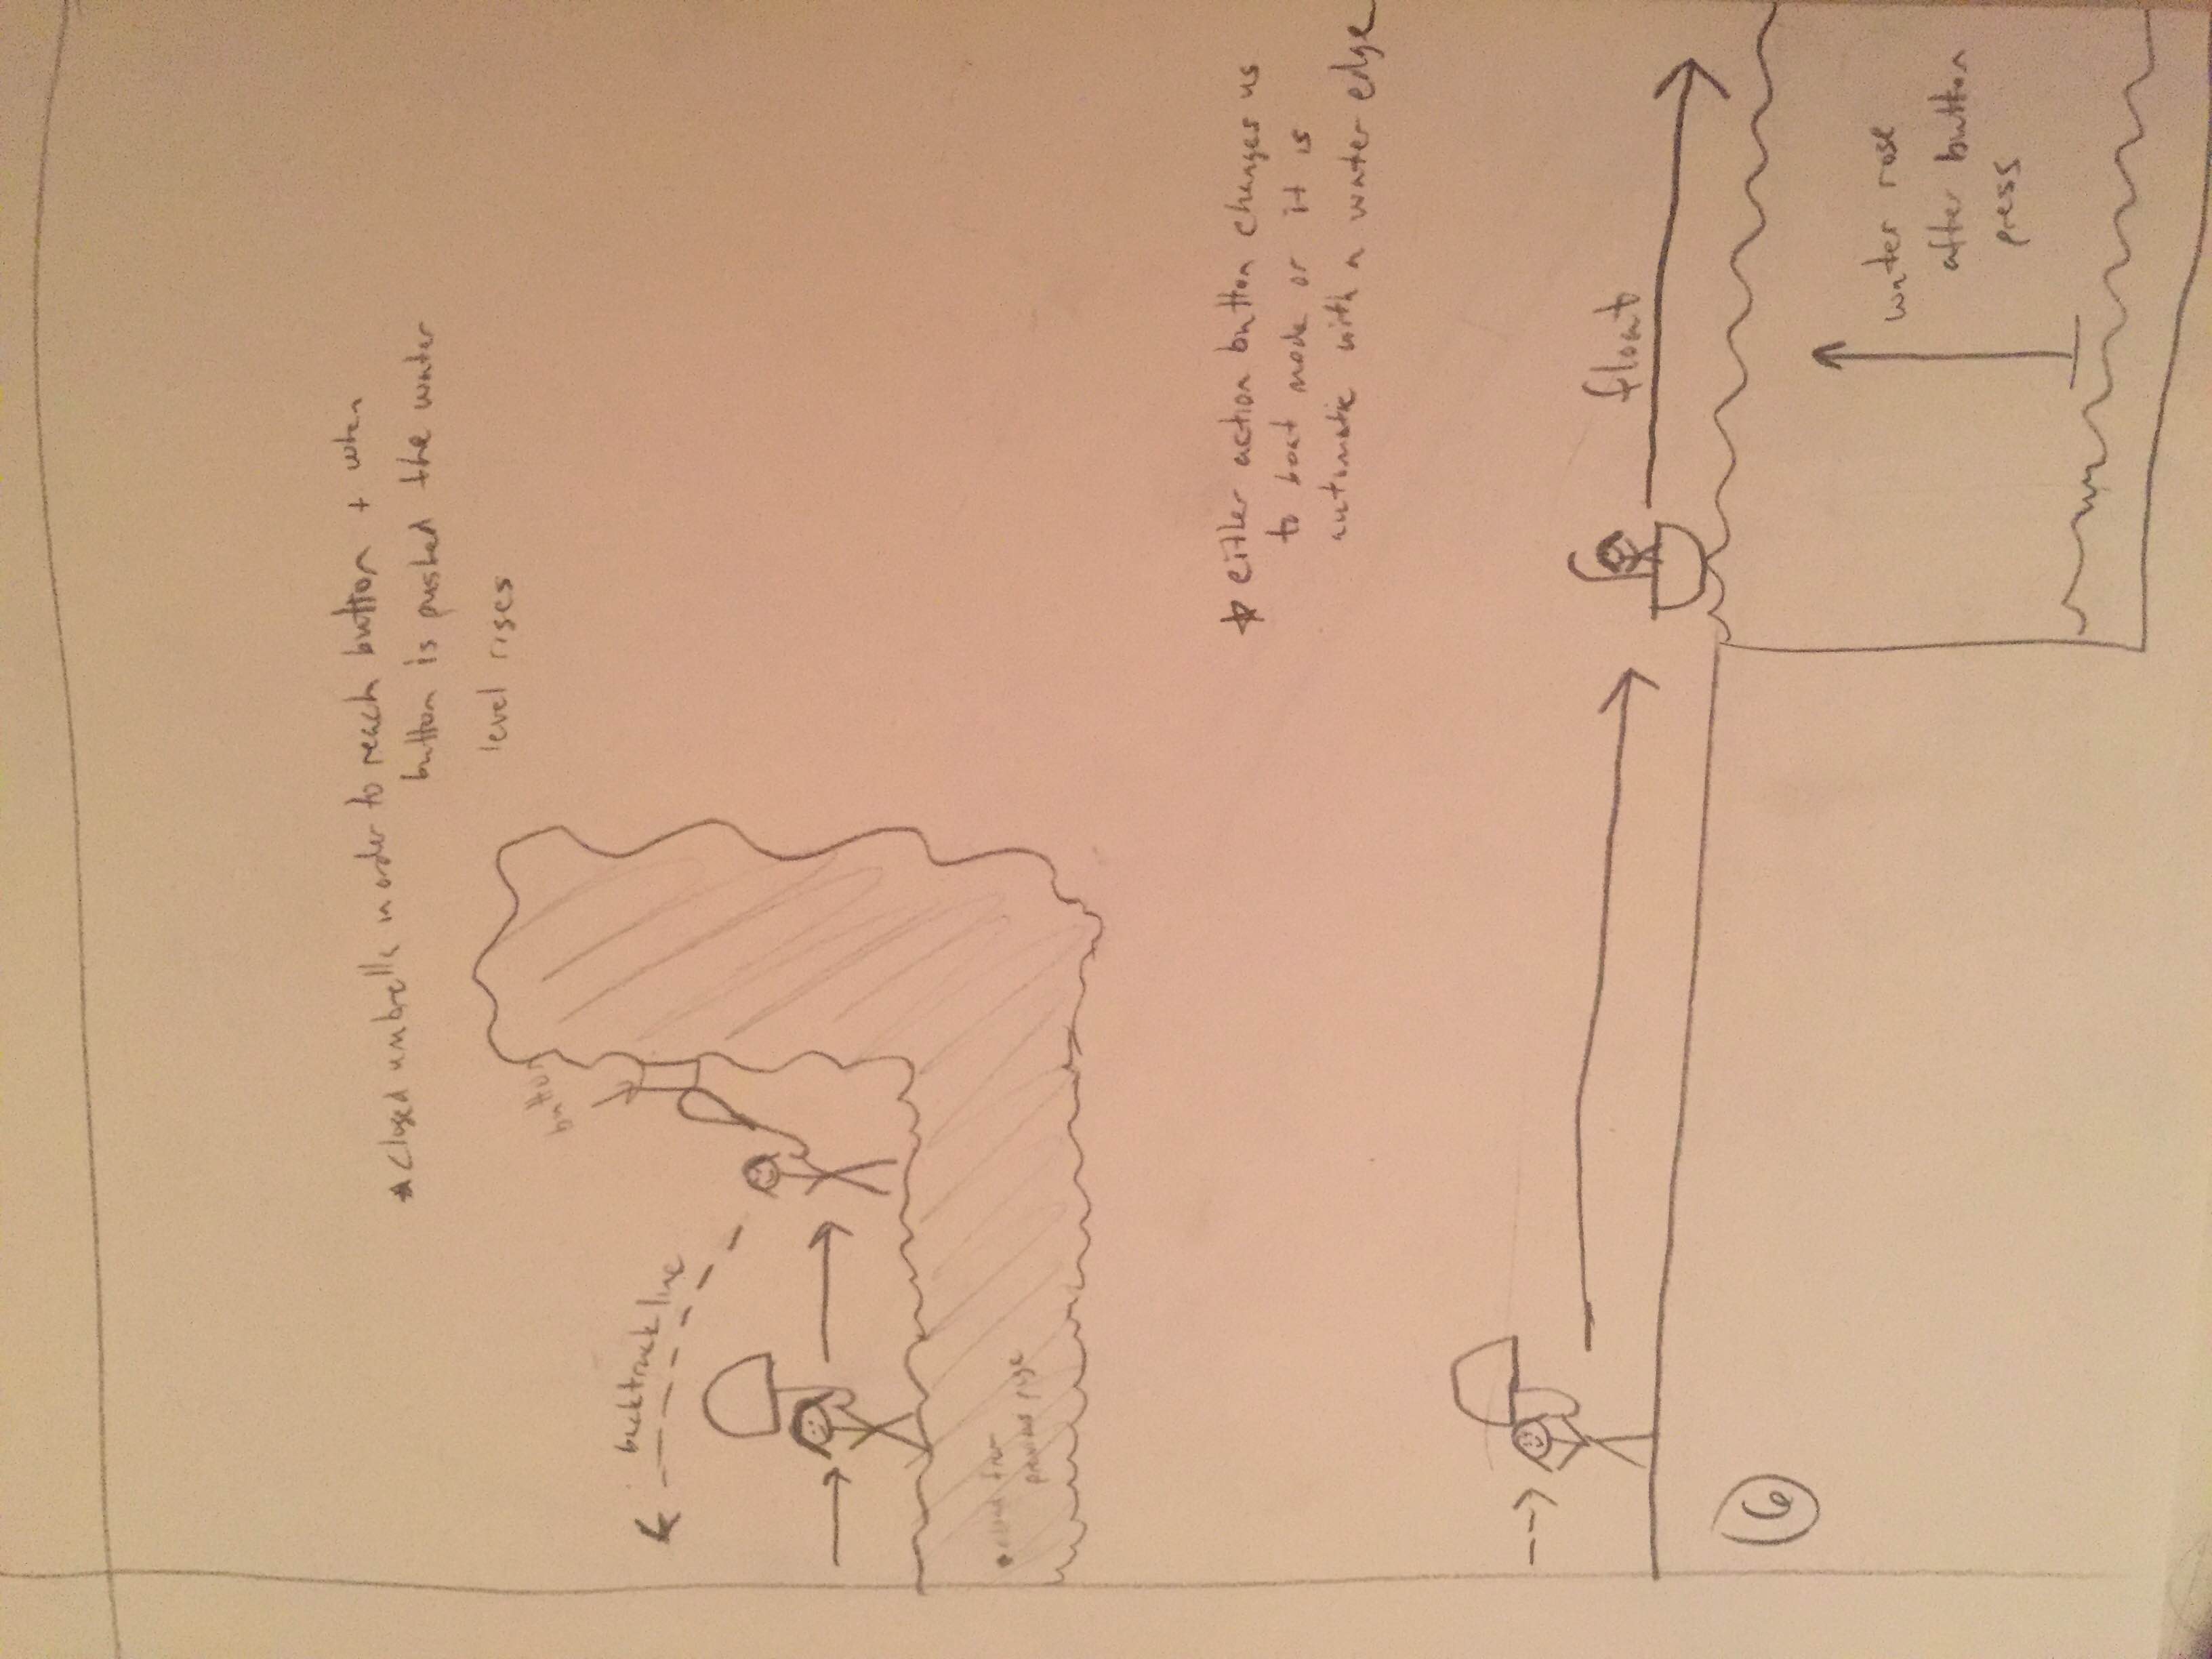 * closed umbrella in order to reach button + when
button is pushed the water
level rises
button
backtrack line
• cloud from
previous page
* either action button changes us
to boat mode or it is
automatic with a water edge
float
6
water rose
after button
press